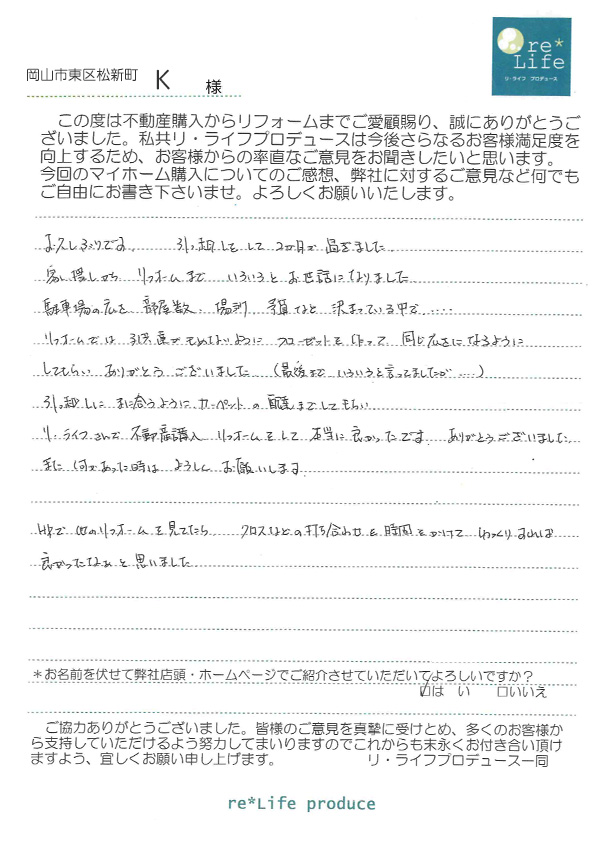 re*
Life
リ・ライフ プロデュース
岡山市東区松新町 K 様
この度は不動産購入からリフォームまでご愛顧賜り、誠にありがとうご
ざいました。私共リ・ライフプロデュースは今後さらなるお客様満足度を
向上するため、お客様からの率直なご意見をお聞きしたいと思います。
今回のマイホーム購入についてのご感想、弊社に対するご意見など何でも
ご自由にお書き下さいませ。よろしくお願いいたします。
お久しぶりです。 引っ越しをして2か月が過ぎました。
家探しから リフォームまで いろいろと お世話になりました
駐車場の広さ 部屋数、場所、予算など 決まっている中で.....
リフォームでは が もめないように クローゼットを作って 同じ広さになるように
してもらい ありがとう ございました (最後まで いろいろと言ってましたが....)
引っ越しに まに合うように カーペットの 配達までしてもらい
リ・ライフさんで 不動産購入 リフォームをして 本当に良かったです ありがとうございました
また 何かあった時は よろしく お願いします
HPで 他のリフォームを見てたら クロスなどの打ち合わせを 時間をかけて ゆっくり すれば
良かったなぁと思いました
*お名前を伏せて弊社店頭・ホームページでご紹介させていただいてよろしいですか?
☑は い □いいえ
ご協力ありがとうございました。皆様のご意見を真摯に受けとめ、多くのお客様か
ら支持していただけるよう努力してまいりますのでこれからも末永くお付き合い頂け
ますよう、宜しくお願い申し上げます。 リ・ライフプロデュース一同
re*Life produce